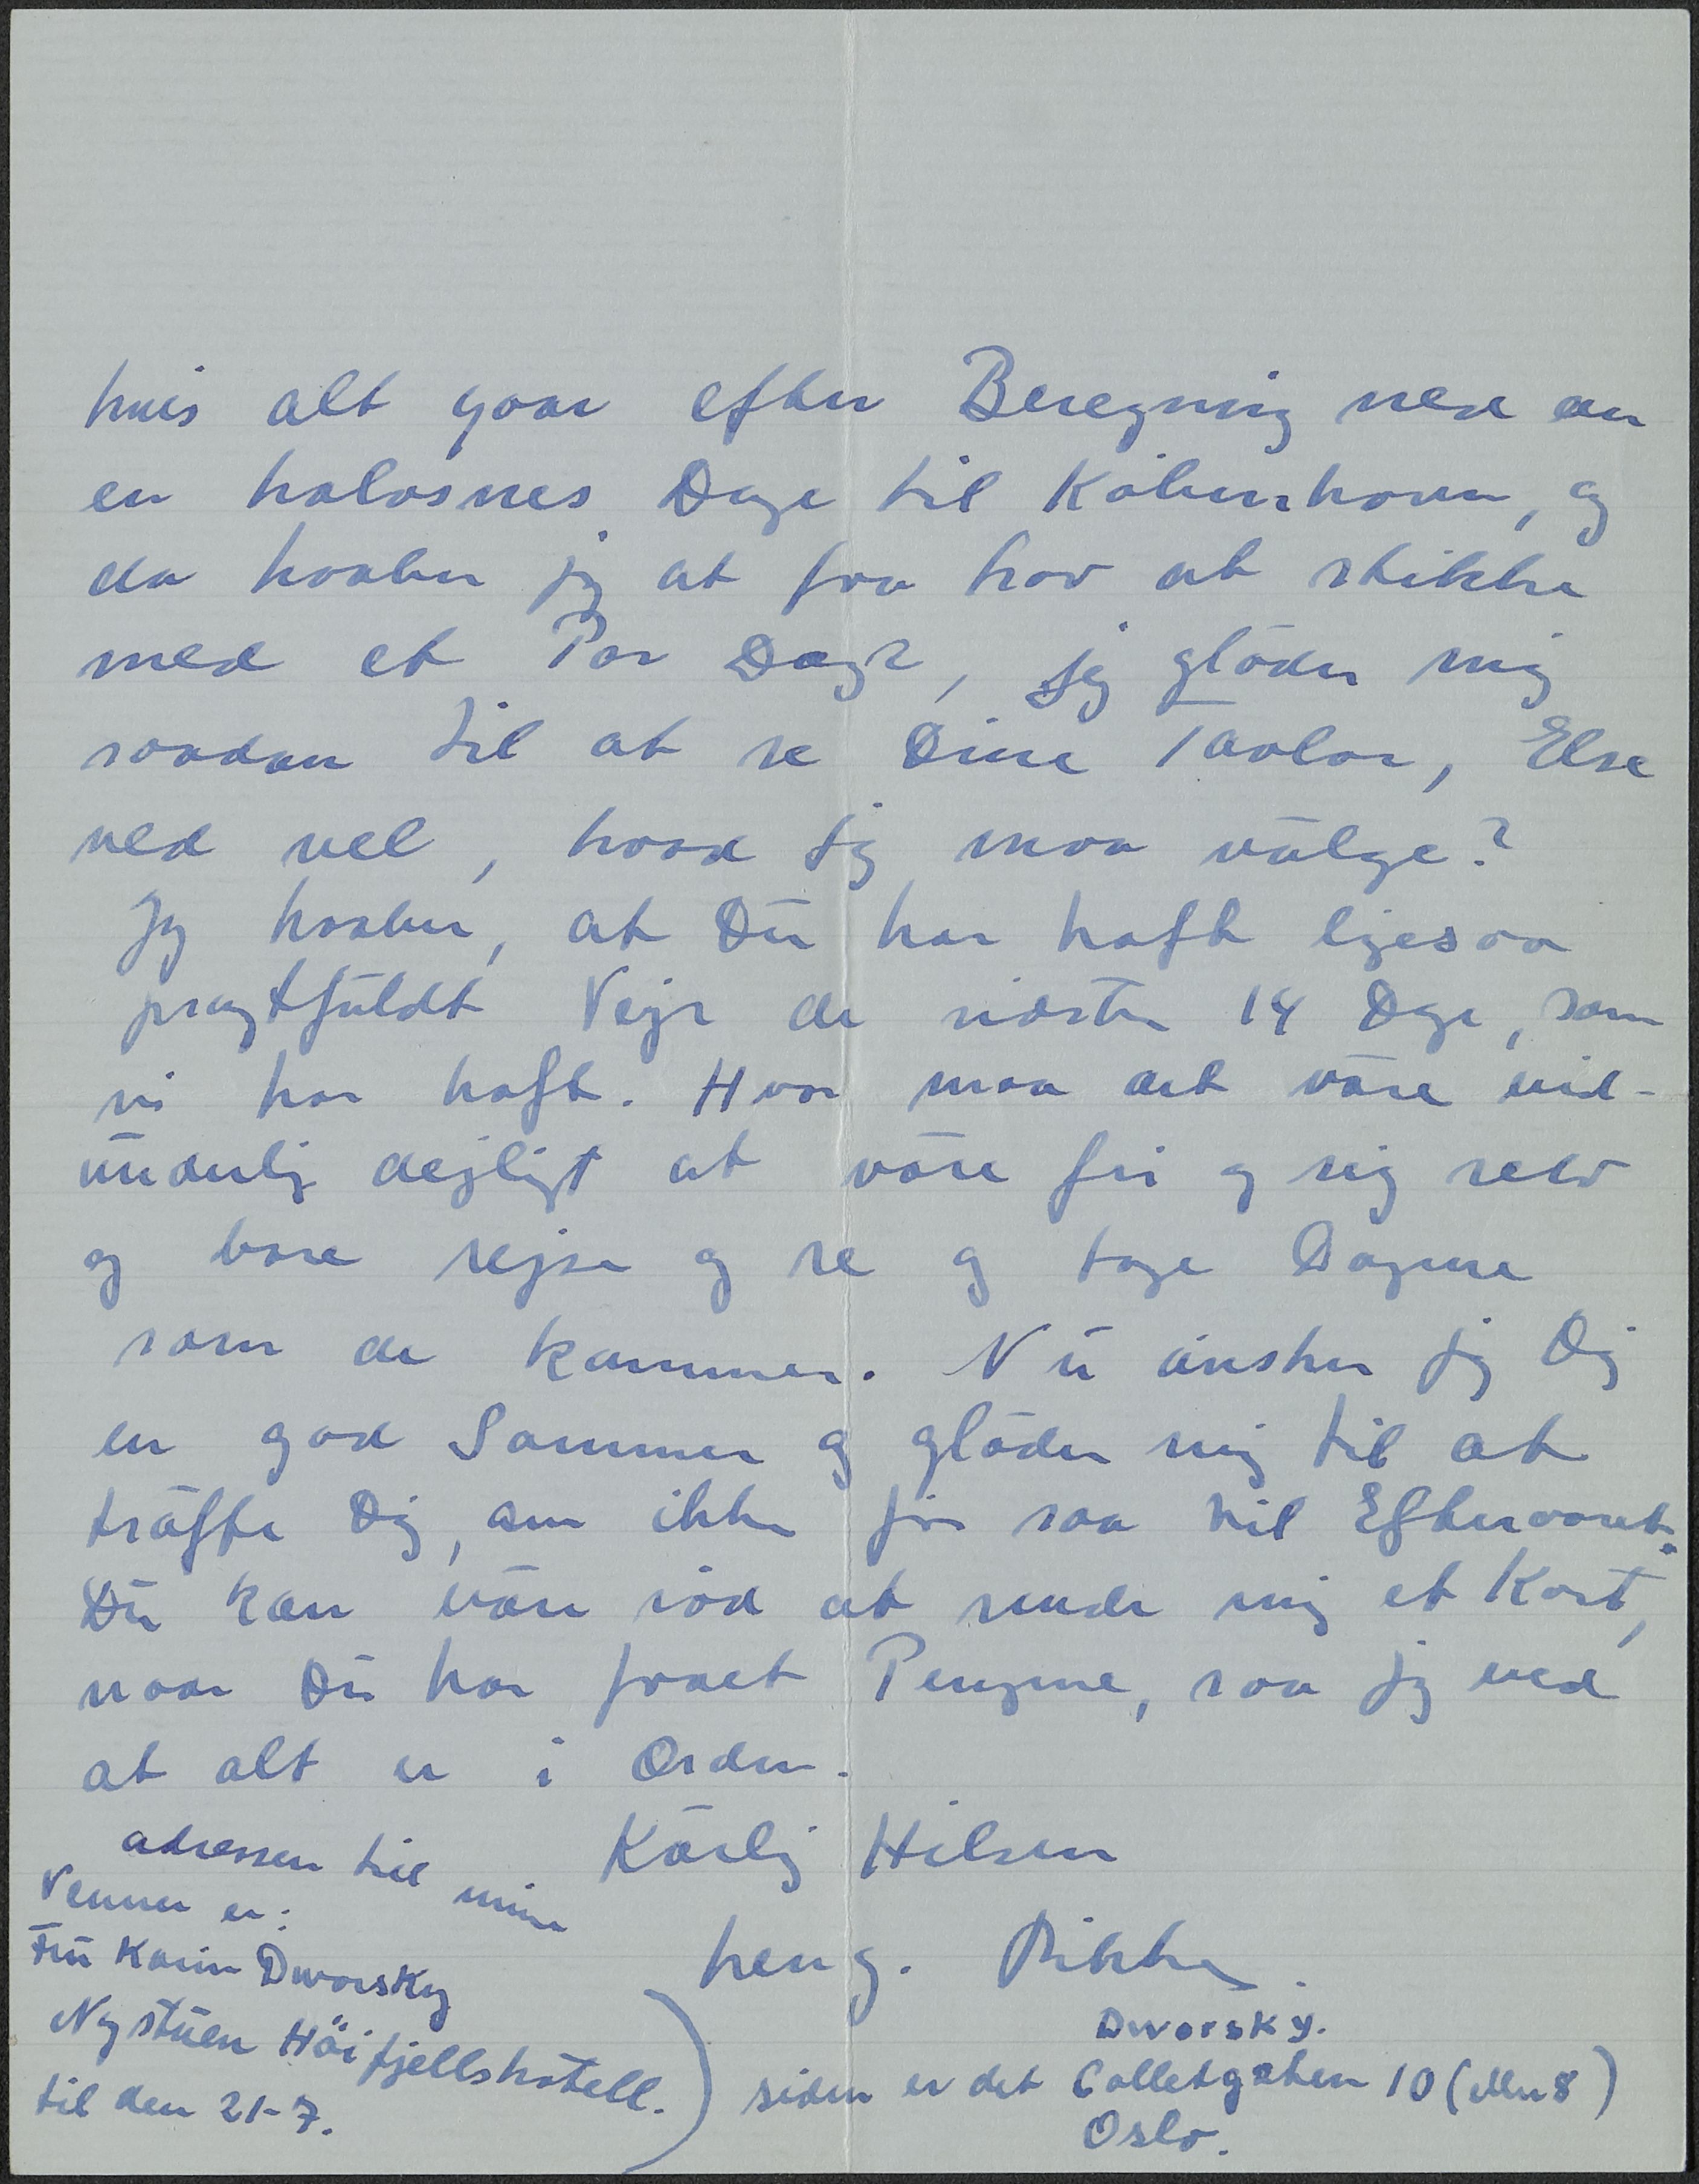 hvis alt gaar efter Beregning ned en
en halvsnes Dage til København, og
da haaber jeg at faa Lov at stikke
med et Par Dage, jeg gläder mig
saadan til at se Dine Tavlor, Else
ved vel, hvad jeg maa välge?
Jeg haaber, at Du har haft ligesaa
pragtfuldt Vejr de sidste 14 Dage, som
vi har haft. Hvor maa det väre vid-
underlig dejligt at väre fri og sig selv
og bare rejse og se og tage Dagene
som de kommer. Nu ønsker jeg Dig
en god Sommer og gläder mig til at
träffe Dig, om ikke før saa til Efteraaret.
Du kan väre sød at sende mig et Kort,
naar Du har faaet Pengene, saa jeg ved
at alt er i Orden.
Kärlig Hilsen
heng. Rikke.
adressen til mine
Venner er:
Fru Karin Dworsky
Nystuen Höifjellshotell.
til den 21-7.
Dworsky.
siden er det Colletgaten 10 (eller 8)
Oslo.